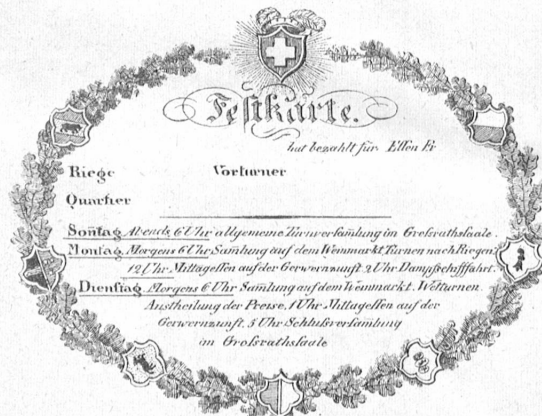 Festkarte.
hat bezahlt für Essen Fr
Riege Vorturner
Quartier
Sontag Abends 6 Uhr allgemeine Turnversamlung im Großrathssaale.
Montag Morgens 6 Uhr Samlung auf dem Weinmarkt, Turnen nach Riegen.
12 Uhr Mittagessen auf der Gerwernzunft. 2 Uhr Dampfschifffahrt.
Dienstag Morgens 6 Uhr Samlung auf dem Weinmarkt. Wetturnen.
Austheilung der Preise, 1 Uhr Mittagessen auf der
Gerwernzunft. 5 Uhr Schlußversamlung
im Großrathssaale